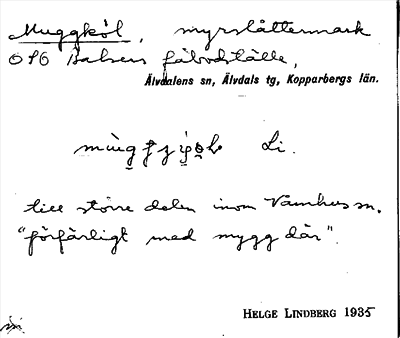 Muggköl, myrslåttermark
OSO Balsens fäbodställe,
Älvdalens sn, Älvdals tg, Kopparbergs län.
Li.
till större delen inom Våmhus sn.
"förfärligt med mygg där".
HELGE LINDBERG 1935